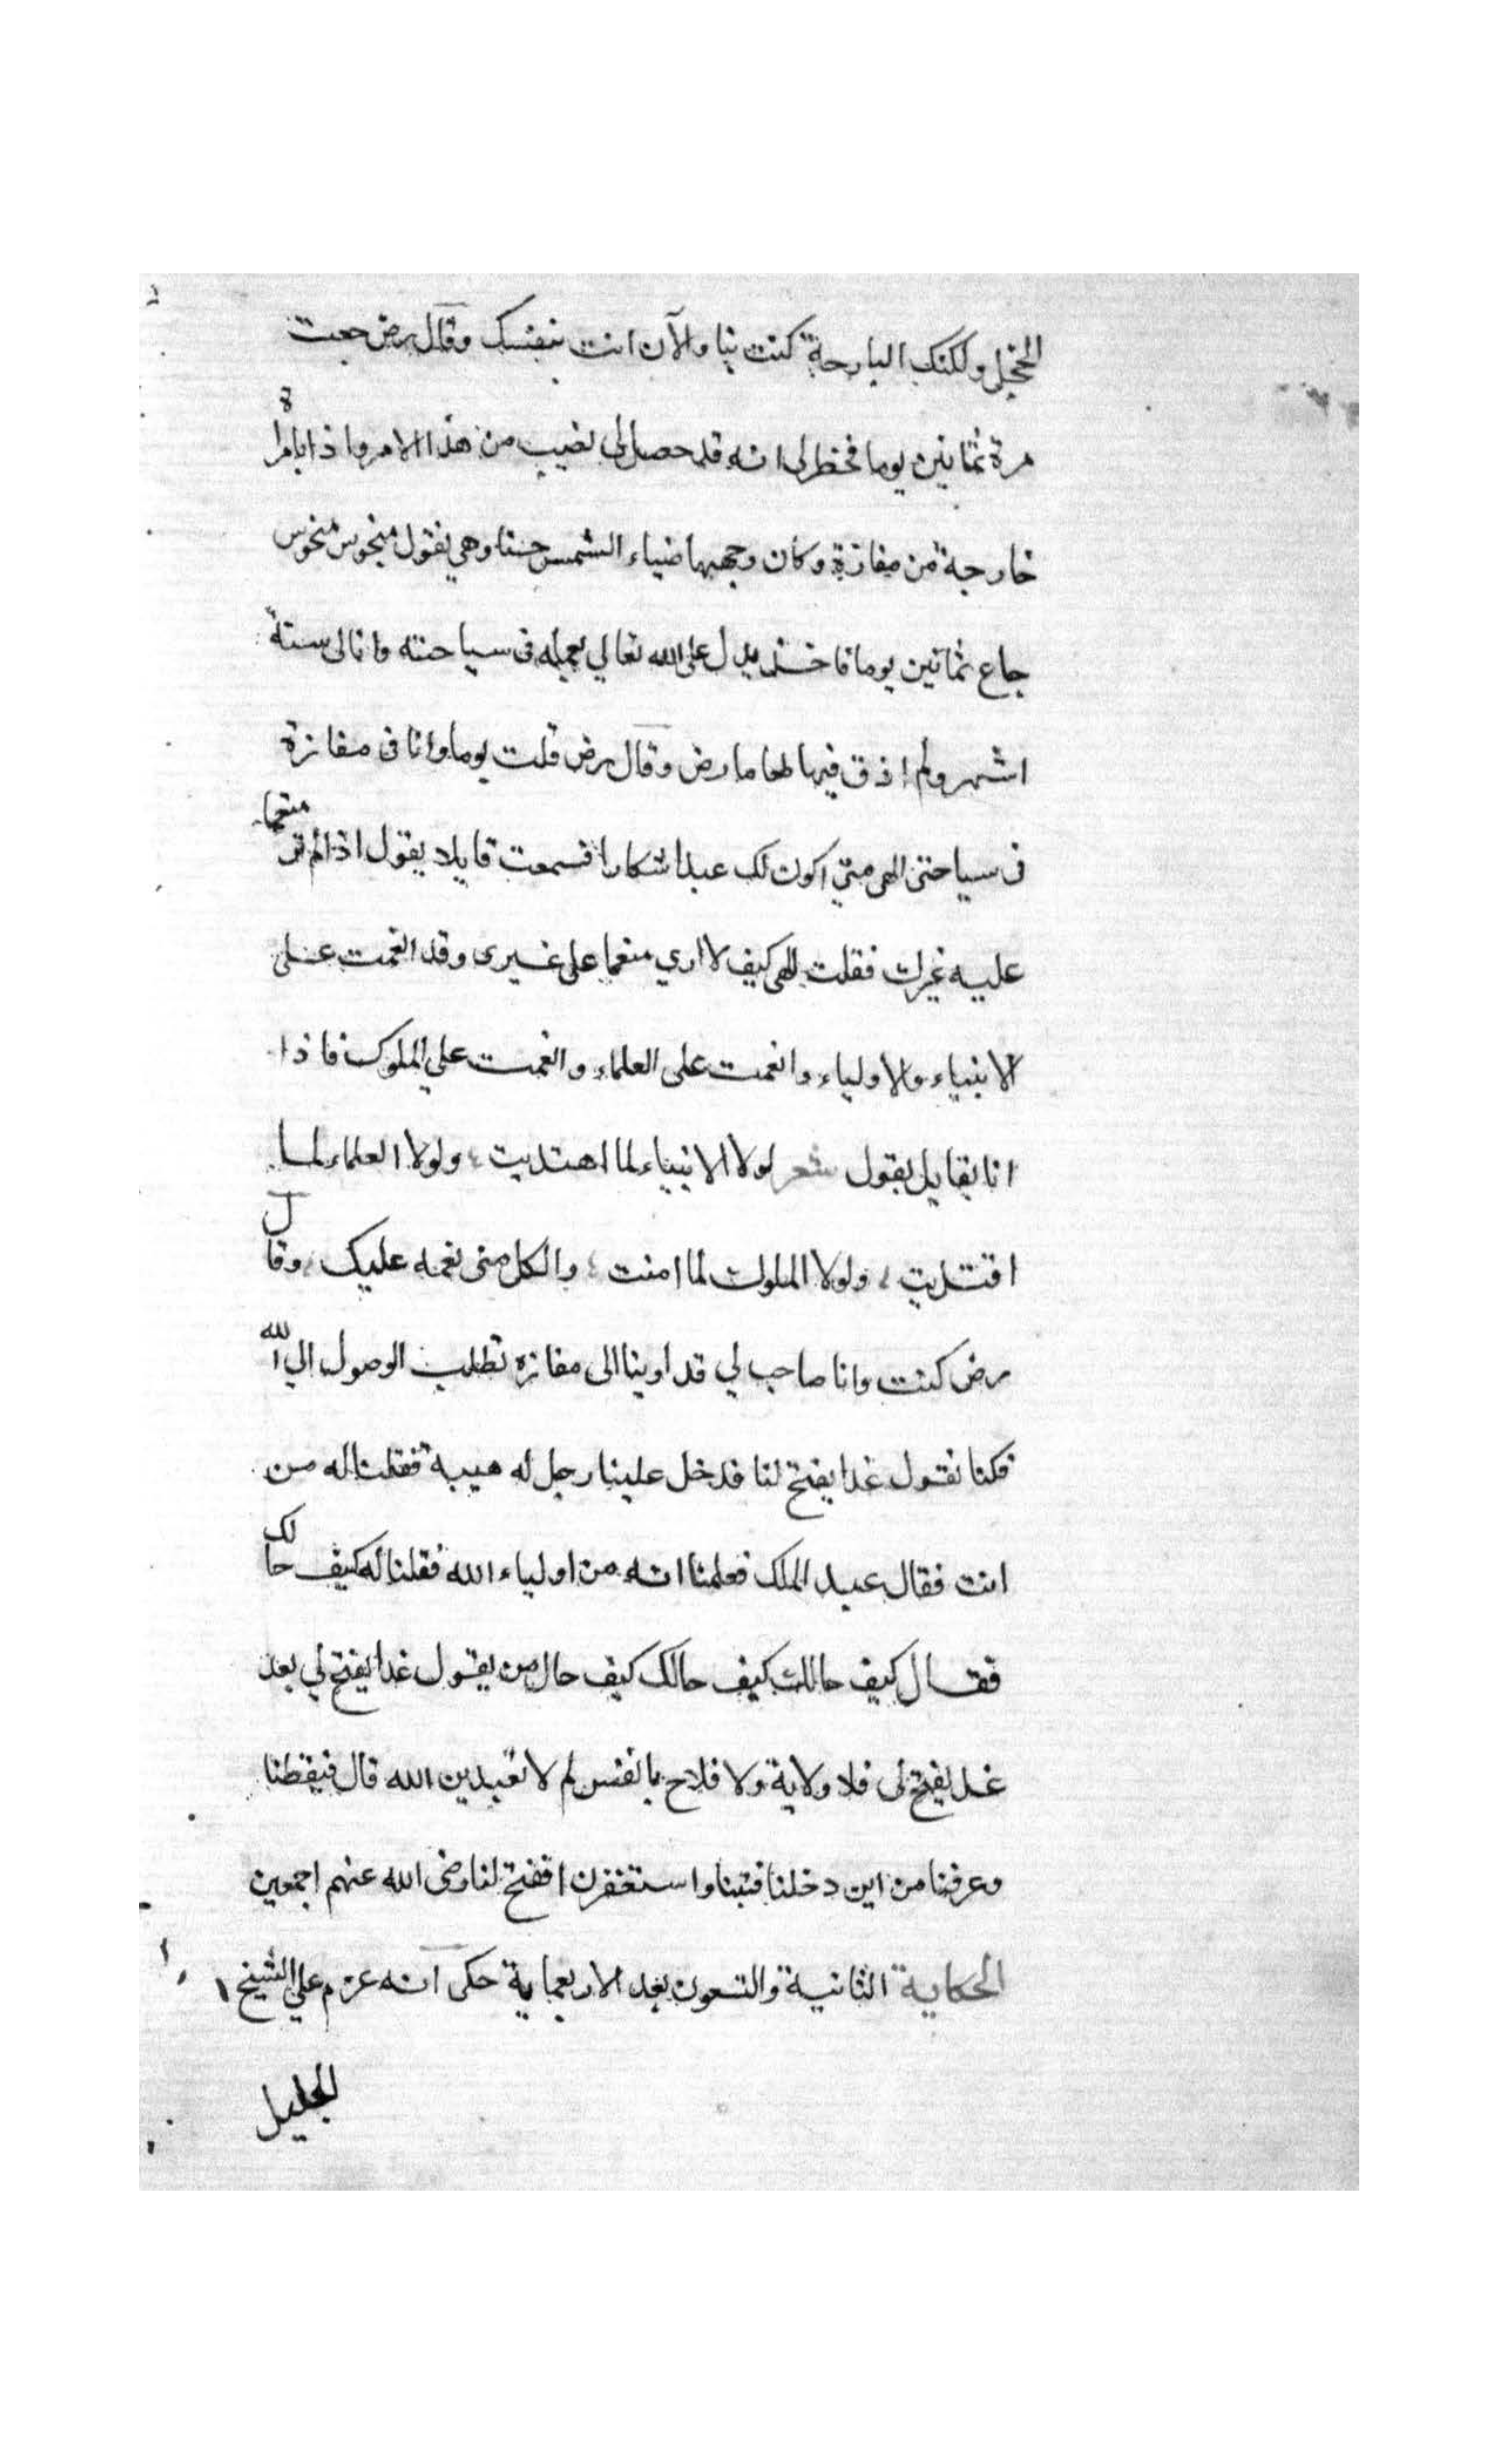 الحجل ولكنك البارحة كنت بنا والآن انت بنفسك وقال رض جعت
مرة ثمانين يوما فخطر لى انه قد حصل لى نصيب من هذا الامر واذا بامراة
خارجة من مفازة وكان وجهها ضياء الشمس حسنا وهي تقول منحوس منحوس
جاع ثمانين يوما فاخذ يدل على الله تعالي بعمله فى سياحته وانا لى ستة
اشهر ولم اذق فيها طعاما رض وقال رض قلت يوما وانا فى مفازة
فى سياحتى الهى متى اكون لك عبدا شكارا فسمعت قايلا يقول اذا لم تر منعما
عليه غيرك فقلت الهى كيف لا اري منعما على غيرى وقد انعمت على
الانبياء والاولياء وانعمت على العلماء وانعمت علي الملوك فاذا
انا بقايل يقول شعر لولا الانبياء لما اهتديت ؛ ولولا العلماء لما
اقتديت ؛ ولولا الملوك لما امنت ؛ والكل منى نعمه عليك ؛ وقال
رض كنت وانا صاحب لي قد اوينا الى مفازه نطلب الوصول الي الله
فكنا نقول غدا يفتح لنا فدخل علينا رجل له هيبة فقلنا له من
انت فقال عبد الملك فعلمنا انه من اولياء الله فقلنا له كيف حالك
فقال كيف حالك كيف حالك كيف حال من يقول غدا يفتح لي بعد
غد يفتح لى فلا ولاية ولا فلاح يا نفس لم لا تعبدين الله قال فيقظنا
وعرفنا من اين دخلنا فتبنا واستغفرنا ففتح لنا رضى الله عنهم اجمعين
الحكاية الثانية والتسعون بعد الاربعماية حكى انه عزم علي الشيخ
الجليل